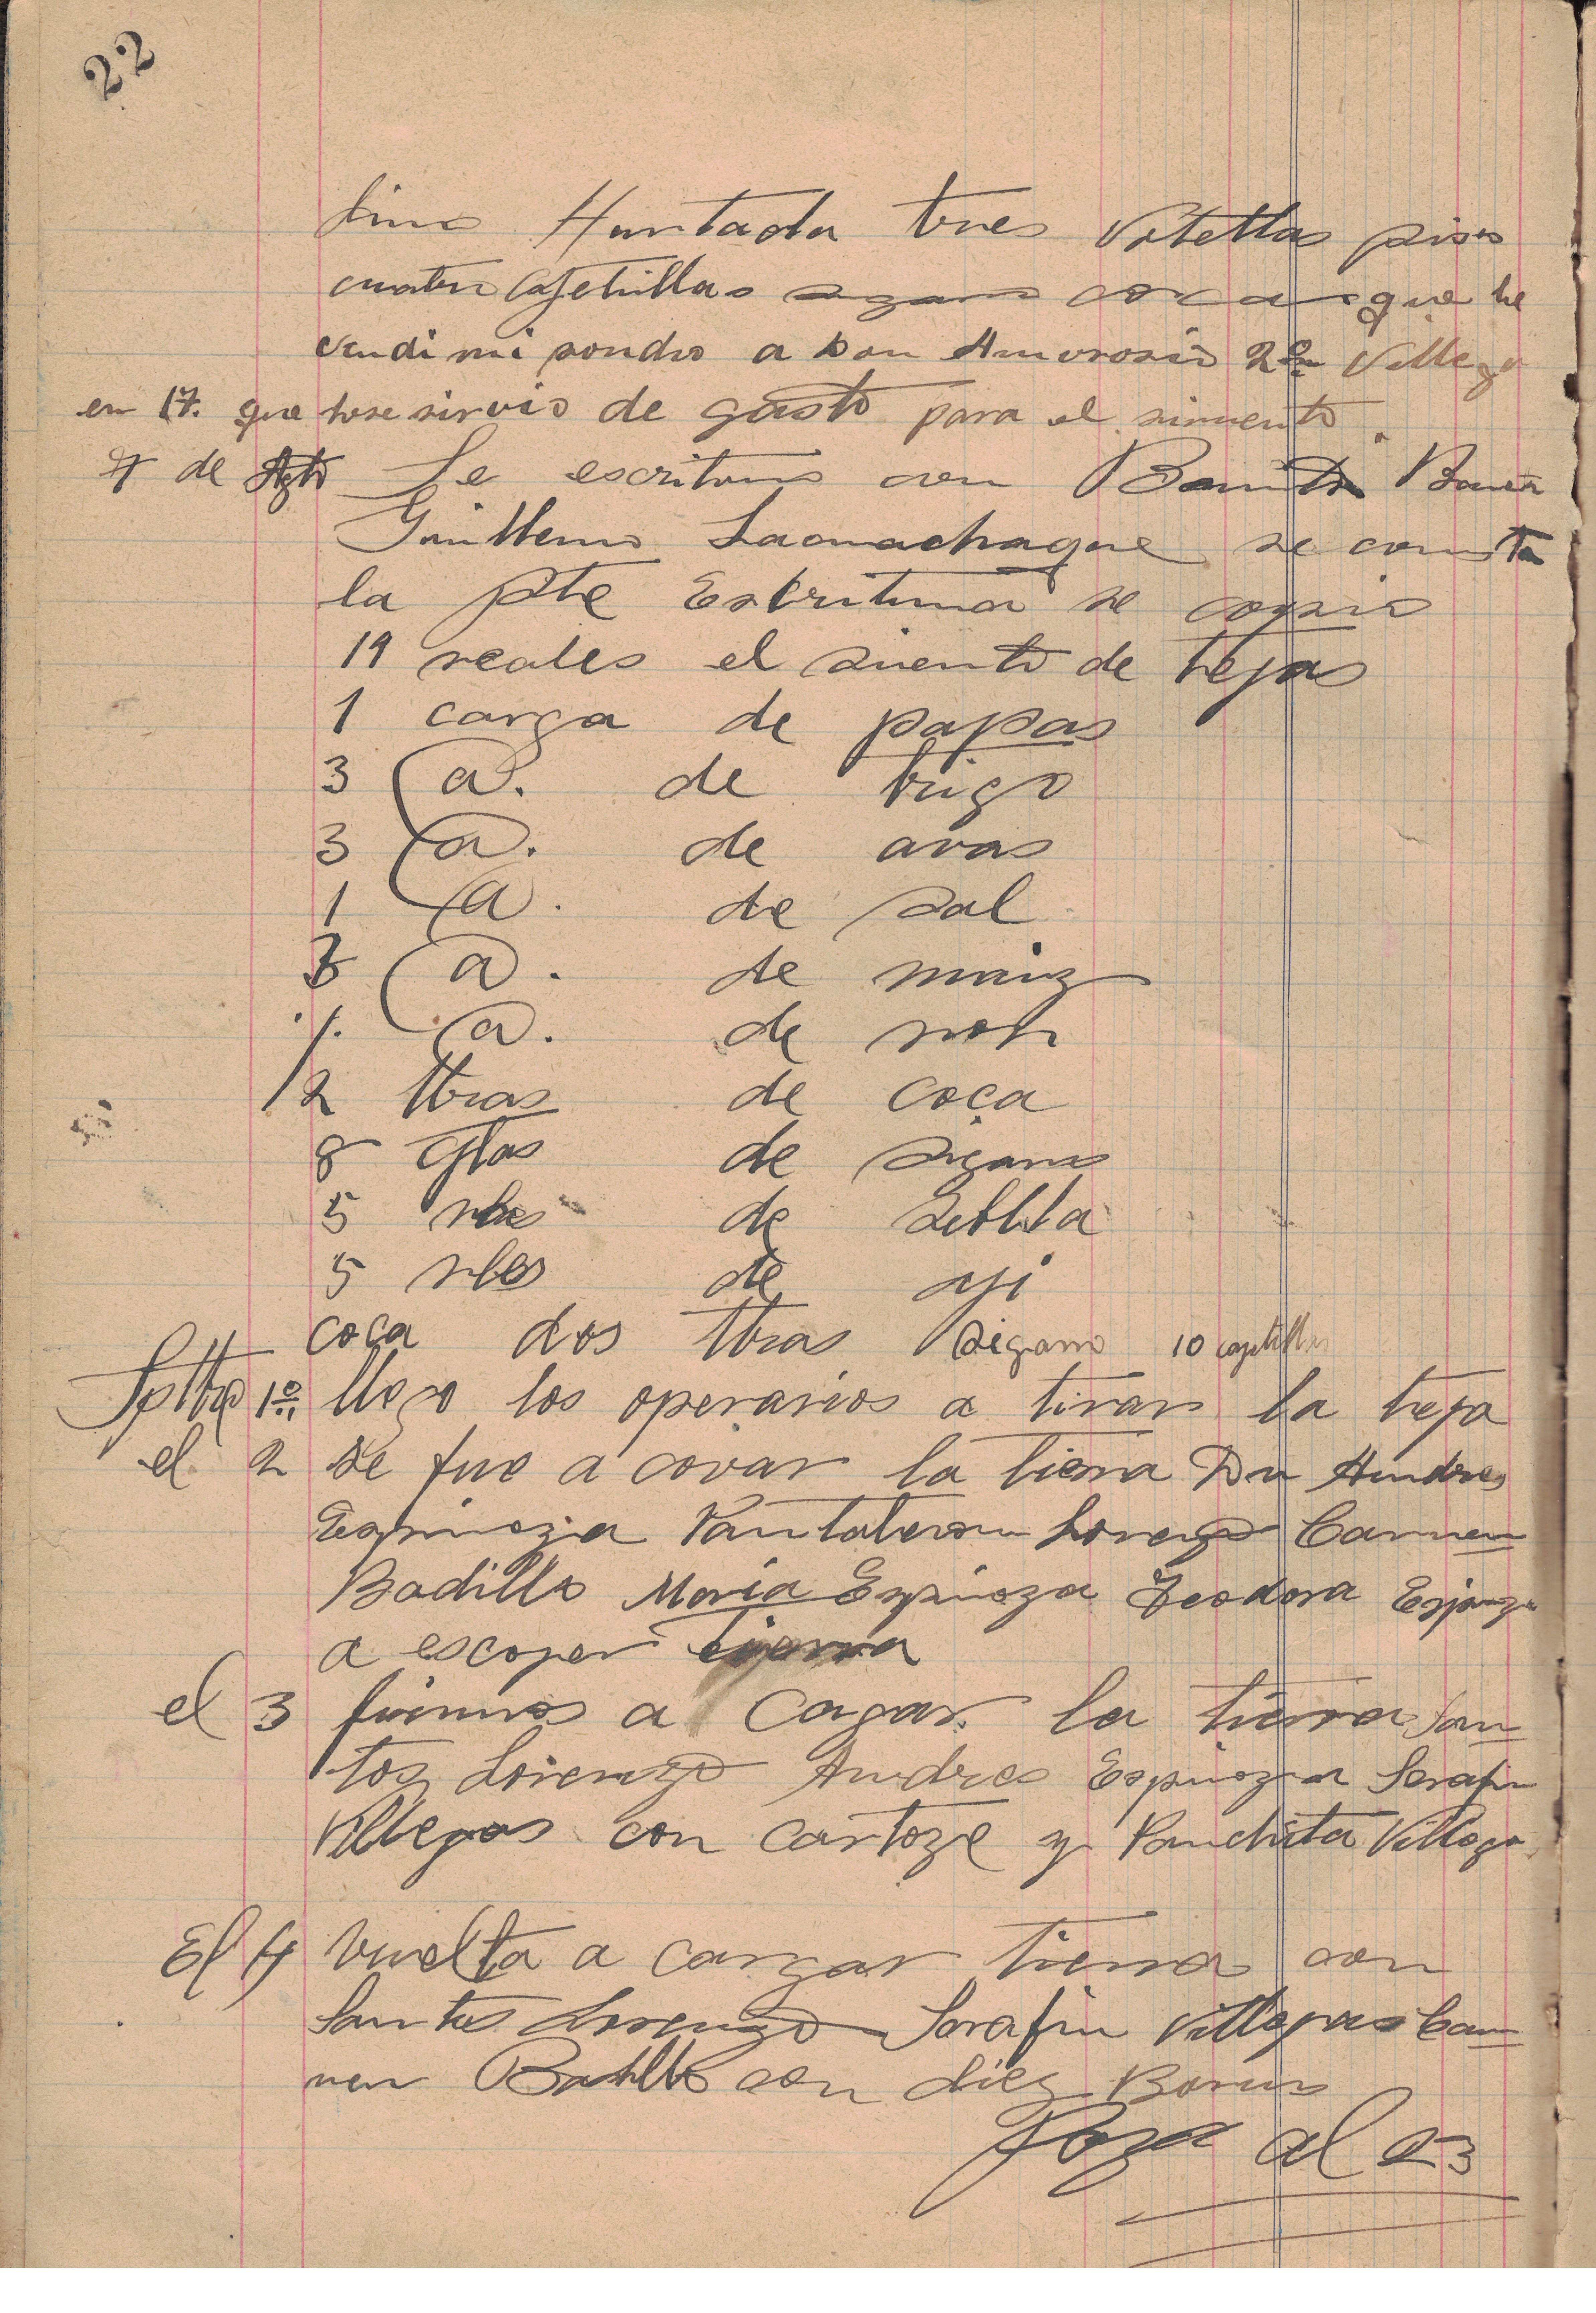 22
Hurtado tres Votellas pisco
cuatro Cajetillas que le
vendi mi sondro a Don Amorosio 2º Villega
en 17. que hose sirvio de gasto para el simiento
7 de Agto Se escrituro con Benito
Guillermo se consta
la pte Escritura se copio
19 reales el siento de tejas
1 carga de papas
3 @. de trigo
3 @. de avas
1 @. de sal
3 @. de maiz
1. @. de
2 ltras de coca
8 Cjtas de sigarro
5 rles de seblla
5 rles de aji
coca dos ltras sigarro 10 cajetillas
Sptbre 1º llego los operarios a tirar la teja
el 2 se fue a covar la tierra Dn Andres
Espinoza Pantaleon Lorenzo Carmen
Badillo Maria Espinoza Teodora Espinoza
a escojer tierra
el 3 fuimos a Cagar la tierra San
tos Lorenzo Andres Espinoza Serafin
Villegas con cartoze y Panchita Villega
El 4 Vuelta a cargar tierra con
Santos Lorenzo Serafin Villegas Car
men Badillo con diez Borros
Pasa al 23